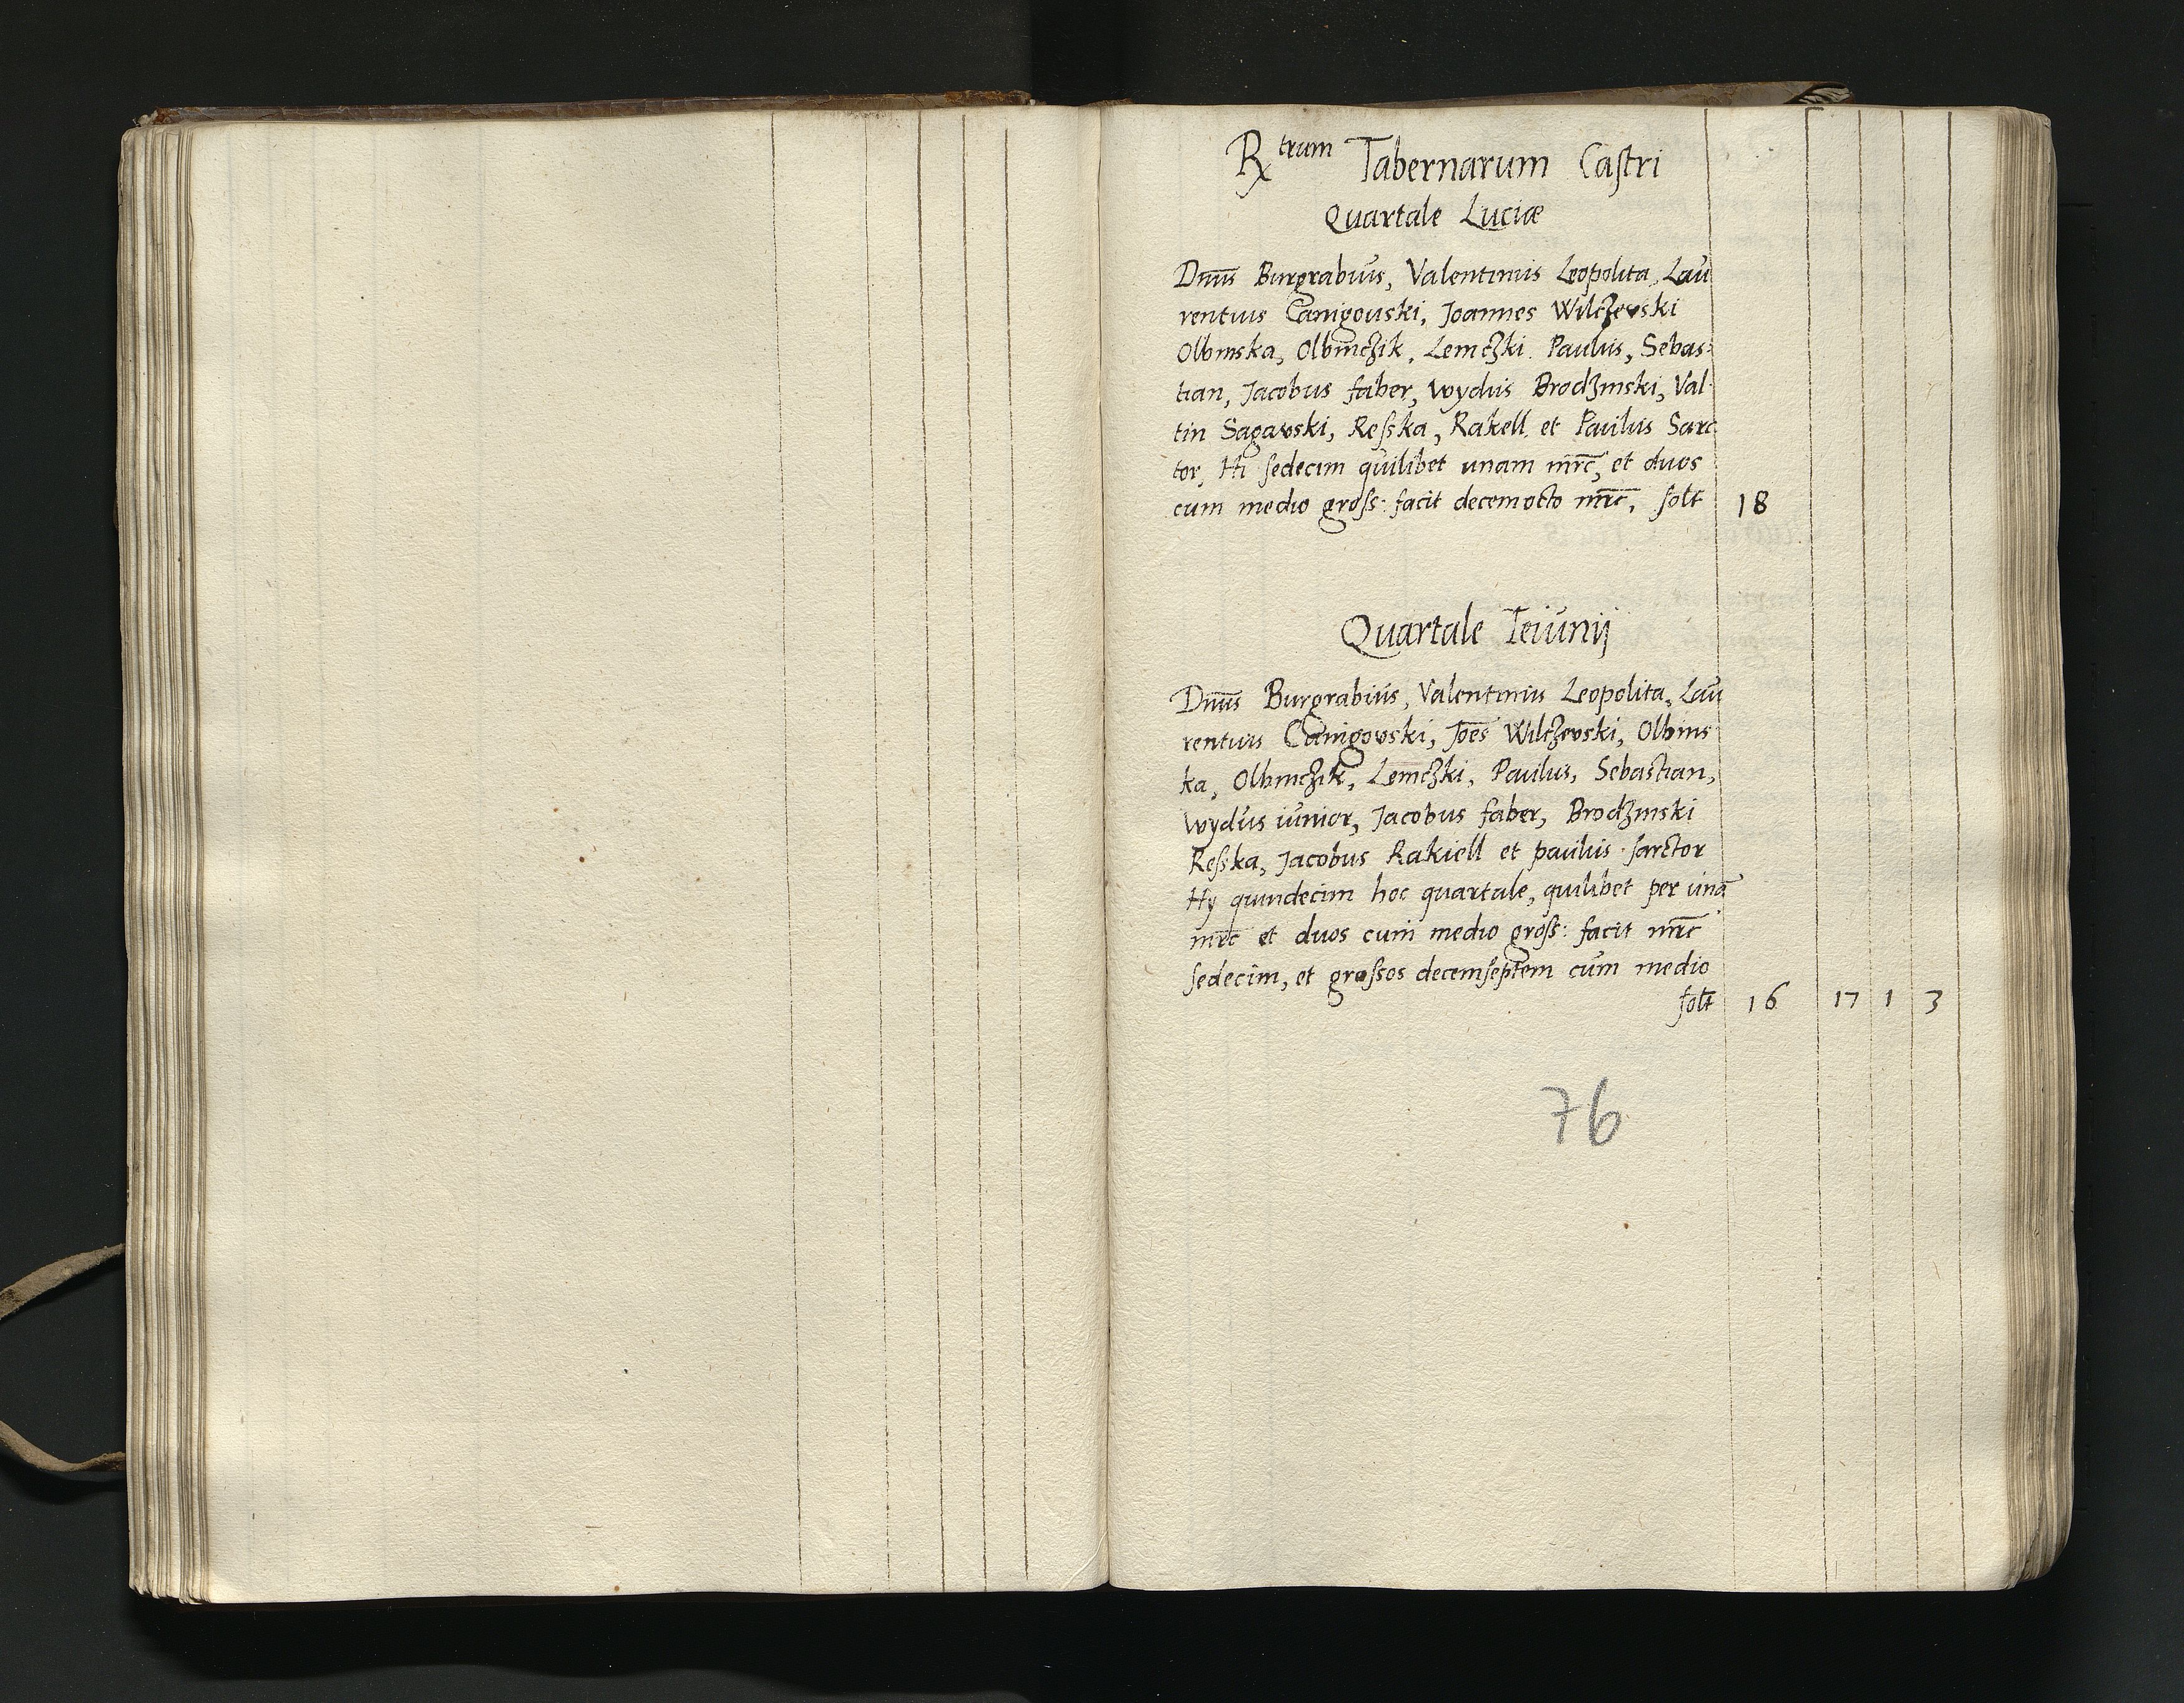 Rtrum Tabernarum Castri
Quartale Luciæ
Dnus Burgrabius, Valentinus Leopolita, Lau
rentius Canigouski, Joannes Wilczevski
Olbinska, Olbinczik, Lemczki. Paulus, Sebas:
tian, Jacobus faber, Wydus Brodzinski, Val-
tin Sagavski, Resska, Rakell. et Paulus Sarc
tor, Hi sedecim quilibet unam mrc, et duos
cum medio gross: facit decemocto mrc, solt 18
Quartale Ieiunij
Dnus Burgrabius, Valentinus Leopolita, Lau
rentius Canigovski, Joes Wilczevski, Olbins
ka, Olbinczik, Lemczki, Paulus, Sebastian,
Wydus iunior, Jacobus faber, Brodzinski
Resska, Jacobus Rakiell et paulus sarctor
Hy quindecim hoc quartale, quilibet per una
mrc et duos cum medio gross: facit mrc
sedecim, et grossos decemseptem cum medio
solt 16 17 1 3
76